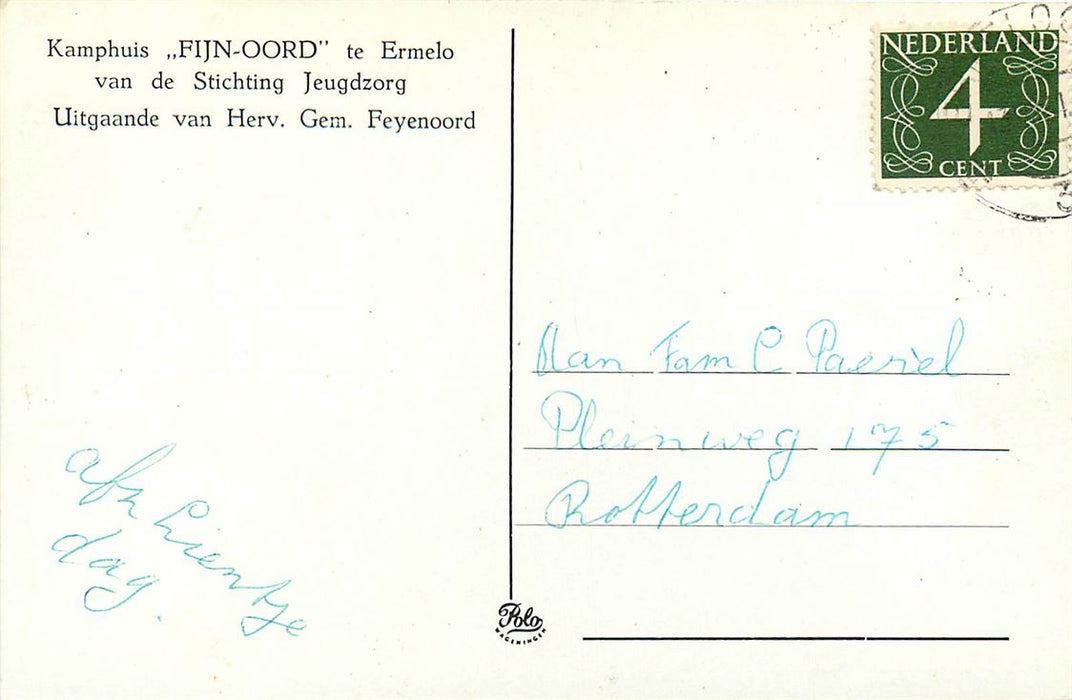 Kamphuis „FIJN-OORD” te Ermelo
van de Stichting Jeugdzorg
Uitgaande van Herv. Gem. Feyenoord
afz Lientje
dag.
NEDERLAND
4
CENT
Aan Fam C Paeriel
Pleinweg 175
Rotterdam
Polo
WAGENINGEN